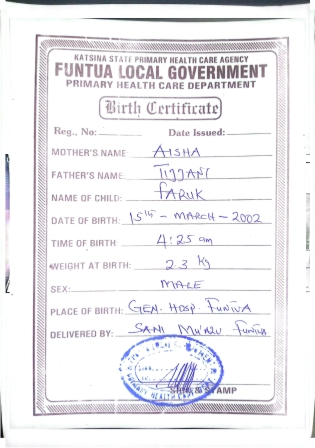 KATSINA STATE PRIMARY HEALTH CARE AGENCY
FUNTUA LOCAL GOVERNMENT
PRIMARY HEALTH CARE DEPARTMENT
Birth Certificate
Reg., No: Date Issued:
MOTHER'S NAME: AISHA
FATHER'S NAME: TIJJANI
NAME OF CHILD: FARUK
DATE OF BIRTH: 15th - MARCH - 2002
TIME OF BIRTH: 4:25 am
WEIGHT AT BIRTH: 2.3 Kg
SEX: MALE
PLACE OF BIRTH: GEN. HOSP. FUNTUA
DELIVERED BY: SANI FUNTUA
PRIMARY HEALTH CARE
STAMP